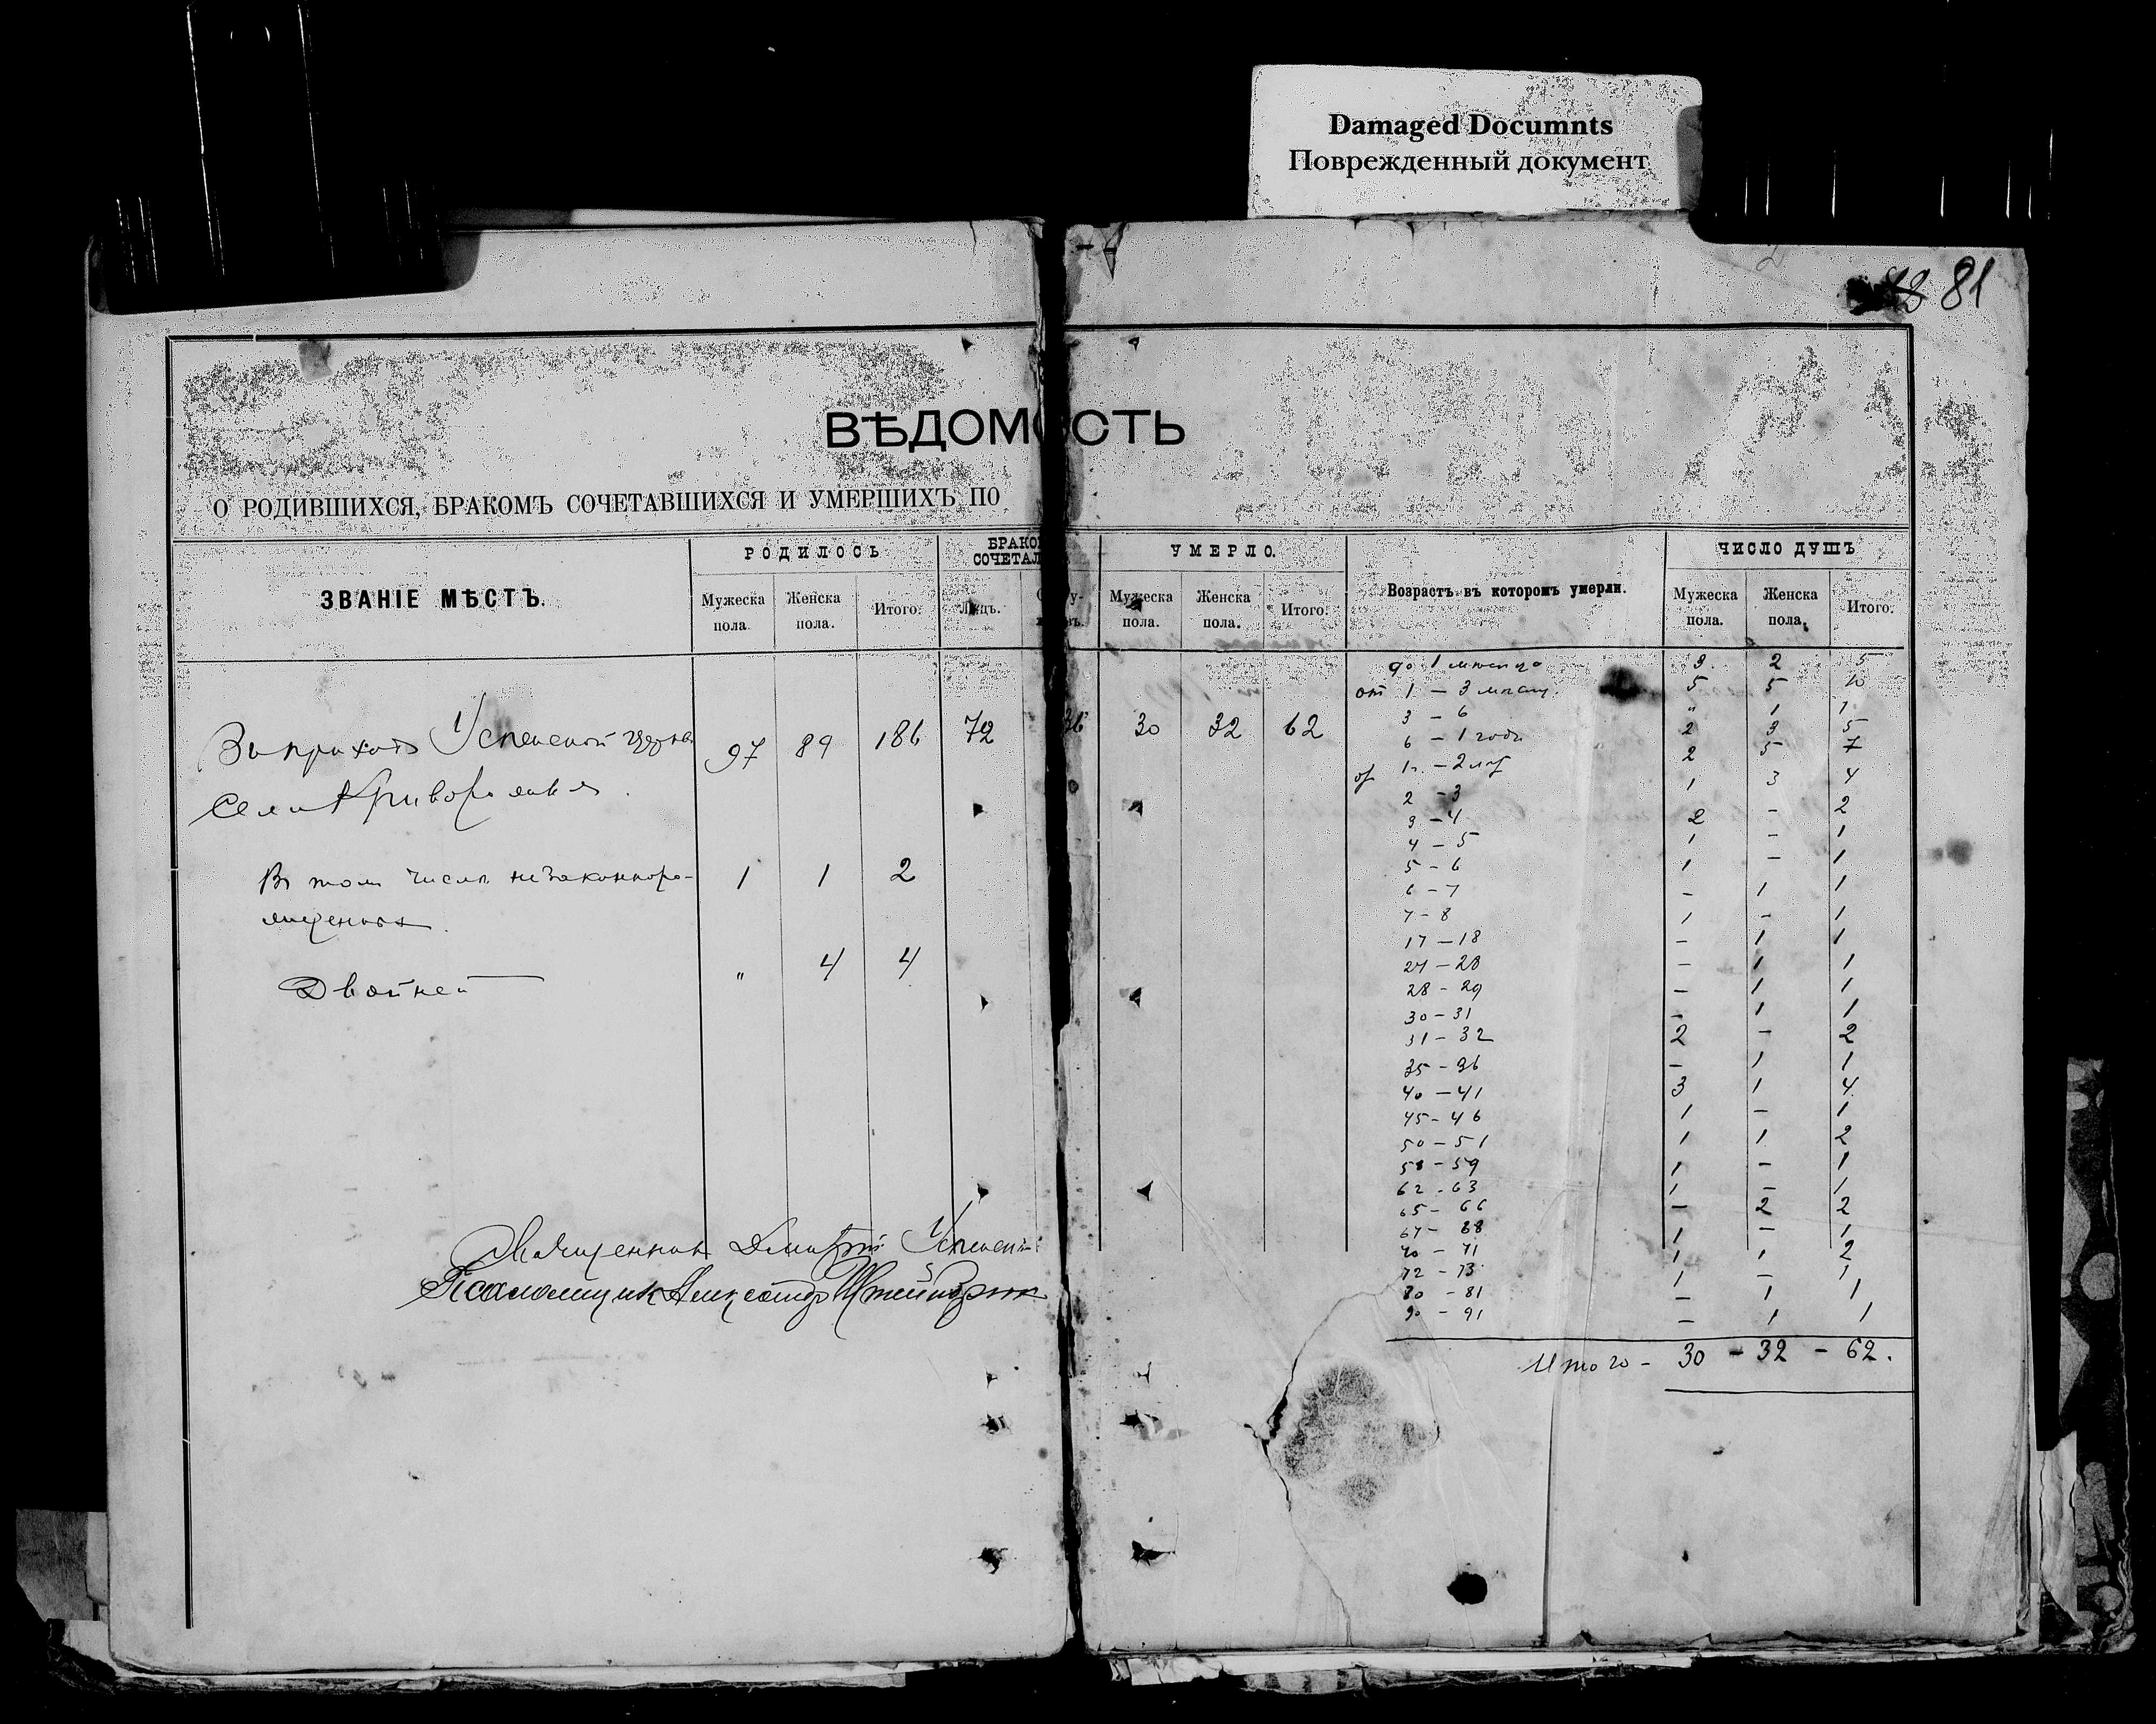 Damaged Documnts
Поврежденный документ
81
ВѢДОМОСТЬ
О РОДИВШИХСЯ, БРАКОМЪ СОЧЕТАВШИХСЯ И УМЕРШИХЪ ПО
ЗВАНІЕ МѢСТЪ. РОДИЛОСЬ БРАКО СОЧЕТАЛ УМЕРЛО. Возрастъ въ которомъ умерли. ЧИСЛО ДУШЪ
Мужеска пола. Женска пола. Итого. Лицъ. Мужеска пола. Женска пола. Итого. Мужеска пола. Женска пола. Итого.
до 1 месяца 3 2 5
от 1 – 3 месяц. 5 5 10
3 – 6 " 1 1
Въ приходѣ Успенской церкви 97 89 186 72 36 30 32 62
6 – 1 года 2 3 5
от 1 г. – 2 лет 2 5 7
Села Криворожья
2 – 3 1 3 4
3 – 4 2 – 2
4 – 5 1 – 1
5 – 6 1 – 1
Въ томъ числѣ незаконноро- 1 1 2
6 – 7 – 1 1
жденныхъ
7 – 8 1 – 1
17 – 18 – 1 1
Двойней " 4 4
27 – 28 – 1 1
28 – 29 – 1 1
30 – 31 – 1 1
31 – 32 2 – 2
35 – 36 – 1 1
40 – 41 3 1 4
45 – 46 1 – 1
50 – 51 1 1 2
58 – 59 1 – 1
62 – 63 1 – 1
65 – 66 – 2 2
67 – 68 1 – 1
70 – 71 1 1 2
72 – 73 1 – 1
80 – 81 – 1 1
90 – 91 – 1 1
Священникъ Дмитрій Успенскій
Псаломщикъ Александръ
Итого – 30 – 32 – 62.